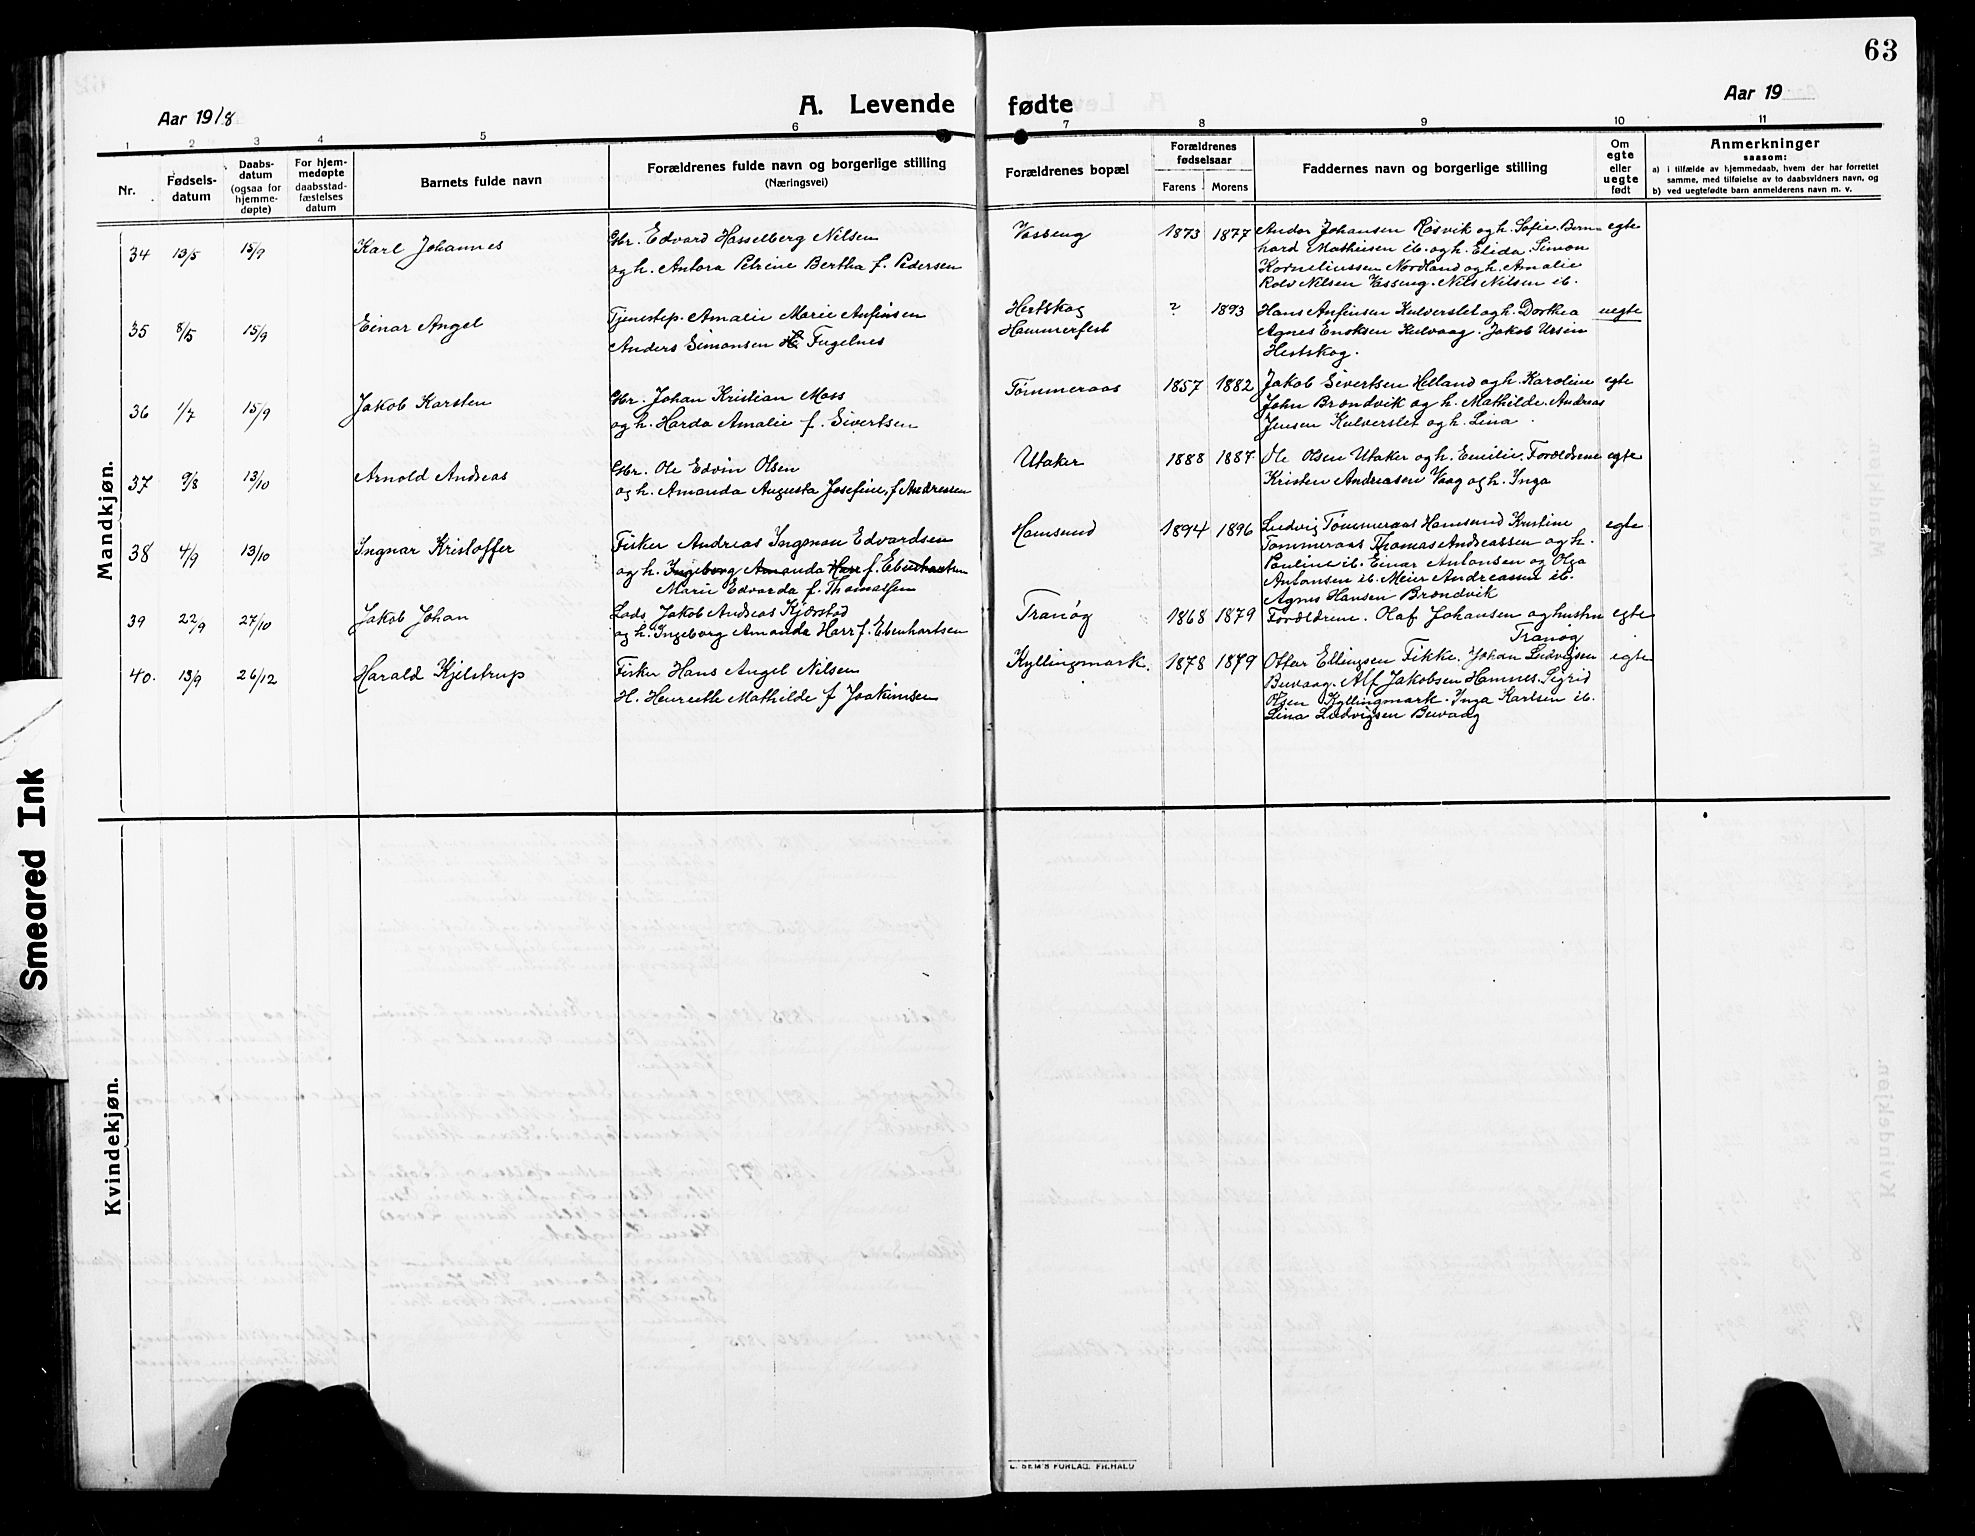 63
Aar 1918
A. Levende fødte
Aar 19
1 2 3 4 5 6 7 8 9 10 11
Nr.
Fødsels-
datum
Daabs-
datum
(ogsaa for
hjemme-
døpte)
For hjem-
medøpte
daabsstad-
fæstelses
datum
Barnets fulde navn
Forældrenes fulde navn og borgerlige stilling
(Næringsvei)
Forældrenes bopæl
Forældrenes
fødselsaar
Farens Morens
Faddernes navn og borgerlige stilling
Om
egte
eller
uegte
født
Anmerkninger
saasom:
a) i tilfælde av hjemmedaab, hvem der har forrettet
samme, med tilføielse av to daabsvidners navn, og
b) ved uegtefødte barn anmelderens navn m. v.
Mandkjøn.
34 13/5 15/9 Karl Johannes
Gbr. Edvard Hasselberg Nilsen
og h. Antora Petrine Bertha f. Pedersen
Vasseng 1873 1877
Andor Johansen Røsvik og h. Sofie. Bern-
hard Mathisen ib. og h. Elida. Simon
Korneliussen Nordland og h. Amalie
Rolv Nilsen Vasseng. Nils Nilsen ib.
egte
35 8/5 15/9 Einar Angel
Tjenestep. Amalie Marie Anfinsen
Anders Simonsen Fugelnes
Hestskog
Hammerfest
? 1893
Hans Anfinsen Kulverslet og h. Dorthea
Agnes Enoksen Kulvaag. Jakob Ursin
Hestskog.
uegte
36 1/7 15/9 Jakob Karsten
Gbr. Johan Kristian Moss
og h. Harda Amalie f. Sivertsen
Tømmeraas 1857 1882
Jakob Sivertsen Helland og h. Karoline
John Brondvik og h. Mathilde. Andreas
Jensen Kulverslet og h. Lina.
egte
37 9/8 13/10 Arnold Andreas
Gbr. Ole Edvin Olsen
og h. Amanda Augusta Josefine f. Andressen
Utaker 1888 1887
Ole Olsen Utaker og h. Emilie. Forældrene
Kristen Andreasen Vaag og h. Inga
egte
38 4/9 13/10 Ingnar Kristoffer
Fisker Andreas Ingman Edvardsen
og h. Ingeborg Amanda Harr f. Ebenhartsen
Marie Edvarda f. Thomassen
Hamsund 1894 1896
Ludvig Tømmeraas Hamsund Kristine
Tømmeraas Thomas Andreassen og h.
Pauline ib. Einar Antonsen og Olga
Antonsen ib. Meier Andreassen ib.
Agnes Hansen Brondvik
egte
39 22/9 27/10 Jakob Johan
Lods Jakob Andreas Kjørstad
og h. Ingeborg Amanda Harr f. Ebenhartsen
Tranøy 1868 1879
Forældrene. Olaf Johansen og hustru
Tranøy
egte
40. 13/9 26/12 Harald Kjelstrup
Fisker Hans Angel Nilsen
H. Henrette Mathilde f Joakimsen
Kyllingmark. 1878 1879
Ottar Ellingsen Fikke. Johan Ludvigsen
Buvaag. Alf Jakobsen Hamnes. Sigrid
Olsen Kyllingmark. Inga Karlsen ib.
Lina Ludvigsen Buvaag
egte
Kvindekjøn.
Smeared Ink
E. SEM'S FORLAG. FR.HALD